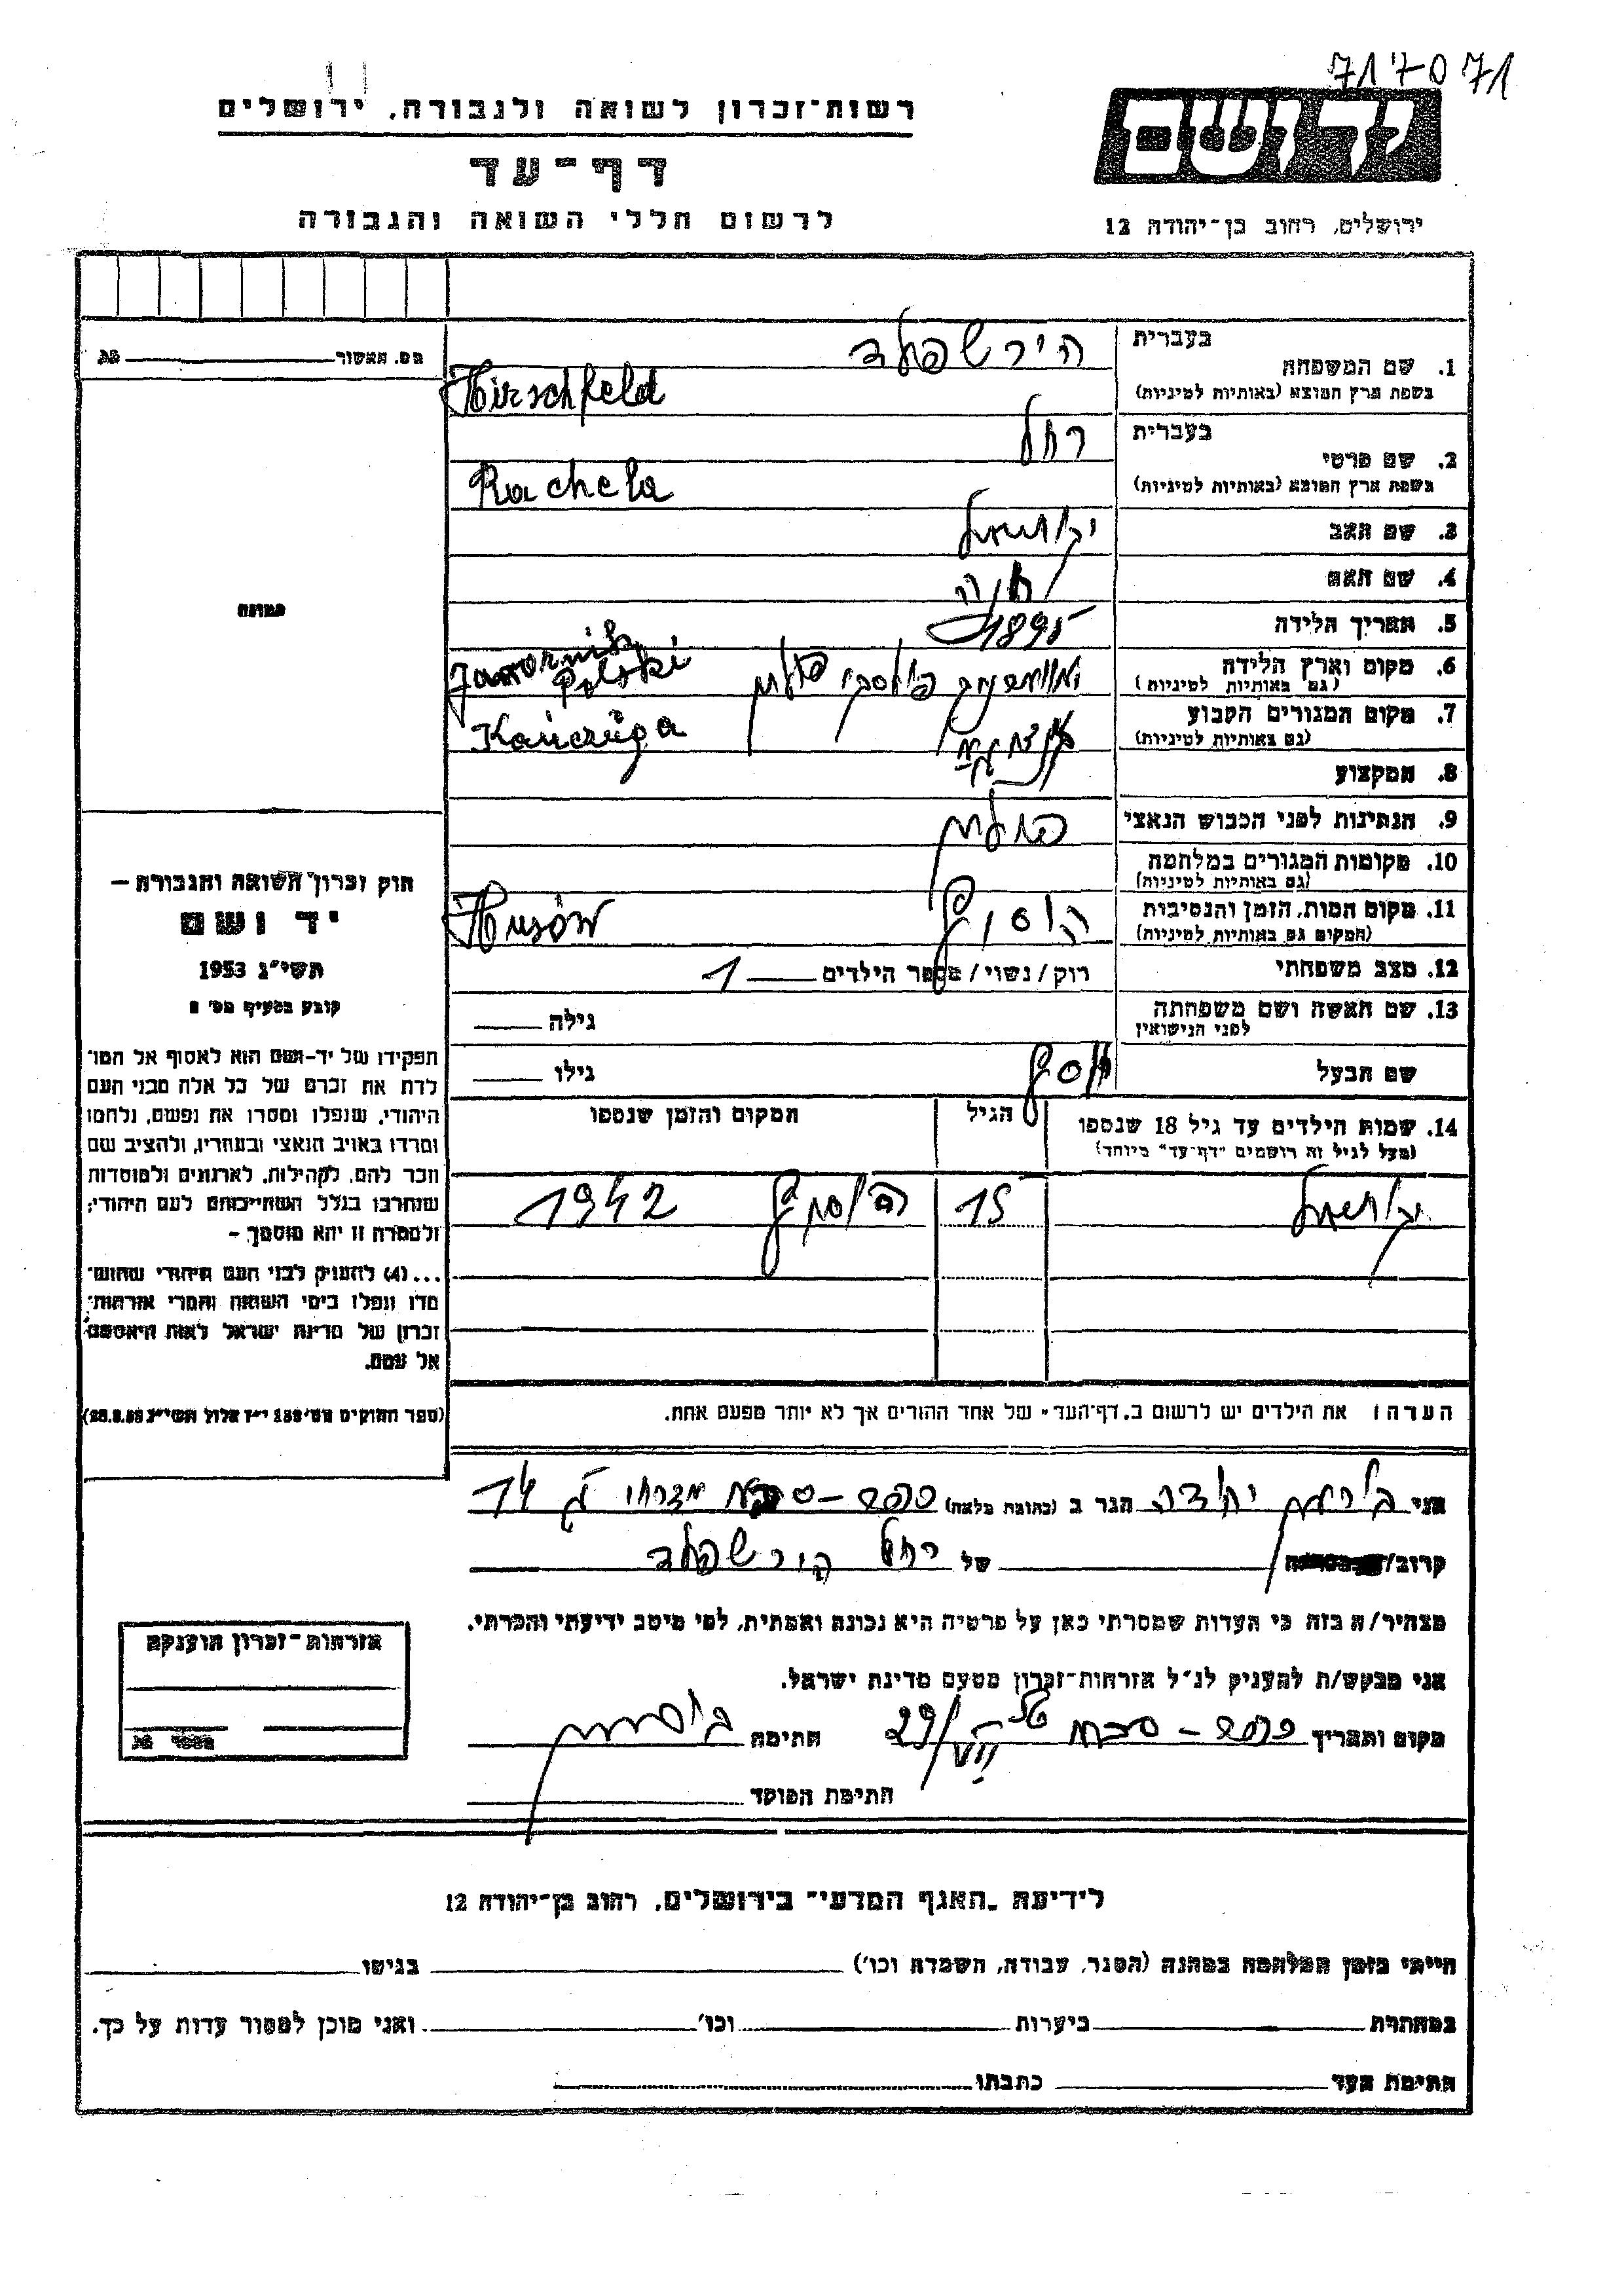 717071
רשות־זכרון לשואה ולגבורה, ירושלים
דף־עד
לרשום חללי השואה והגבורה
יד ושם
ירושלים, רחוב בן־יהודה 12
מס. האשור
בעברית
1. שם המשפחה
בשפת ארץ המוצא (באותיות לטיניות)
הירשפלד
Hirschfeld
בעברית
2. שם פרטי
בשפת ארץ המוצא (באותיות לטיניות)
רחל
Rachela
3. שם האב
4. שם האם
5. תאריך הלידה 1895
6. מקום וארץ הלידה
(גם באותיות לטיניות)
פולסקי פולין Jawornik Polski
7. מקום המגורים הקבוע
(גם באותיות לטיניות)
Kańczuga
8. המקצוע
9. הנתינות לפני הכבוש הנאצי
פולנית
10. מקומות המגורים במלחמה
(גם באותיות לטיניות)
11. מקום המות, הזמן והנסיבות
(המקום גם באותיות לטיניות)
Husów
12. מצב משפחתי רוק/נשוי/מספר הילדים 1
13. שם האשה ושם משפחתה
לפני הנישואין
גילה
שם הבעל יוסף גילו
14. שמות הילדים עד גיל 18 שנספו
(מעל לגיל זה רושמים "דף־עד" מיוחד)
הגיל
המקום והזמן שנספו
15 1942
הערה: את הילדים יש לרשום ב„דף־העד" של אחד ההורים אך לא יותר מפעם אחת.
תמונה
חוק זכרון השואה והגבורה —
יד ושם
תשי"ג 1953
קובע בסעיף מס'
תפקידו של יד־ושם הוא לאסוף אל המו־
לדת את זכרם של כל אלה מבני העם
היהודי, שנפלו ומסרו את נפשם, נלחמו
ומרדו באויב הנאצי ובעוזריו, ולהציב שם
וזכר להם, לקהילות, לארגונים ולמוסדות
שנחרבו בגלל השתייכותם לעם היהודי;
ולמטרה זו יהא מוסמך –
...(4) להעניק לבני העם היהודי שהוש־
מדו ונפלו בימי השואה והמרי אזרחות־
זכרון של מדינת ישראל לאות היאספם
אל עמם.
(ספר החוקים מס' 132 י"ז אלול תשי"ג 28.8.53)
אני יהודה הגר ב (כתובת מלאה) 14
קרוב/ של רחל הירשפלד
מצהיר/ה בזה כי העדות שמסרתי כאן על פרטיה היא נכונה ואמתית, לפי מיטב ידיעתי והכרתי.
אני מבקש/ת להעניק לנ"ל אזרחות־זכרון מטעם מדינת ישראל.
מקום ותאריך 29/VII חתימה
חתימת הפוקד
אזרחות־זכרון הוענקה
מספר
לידיעת „האגף המדעי" בירושלים, רחוב בן־יהודה 12
הייתי בזמן המלחמה במחנה (הסגר, עבודה, השמדה וכו') בגיטו
במחתרת ביערות וכו' ואני מוכן למסור עדות על כך.
חתימת העד כתבתו